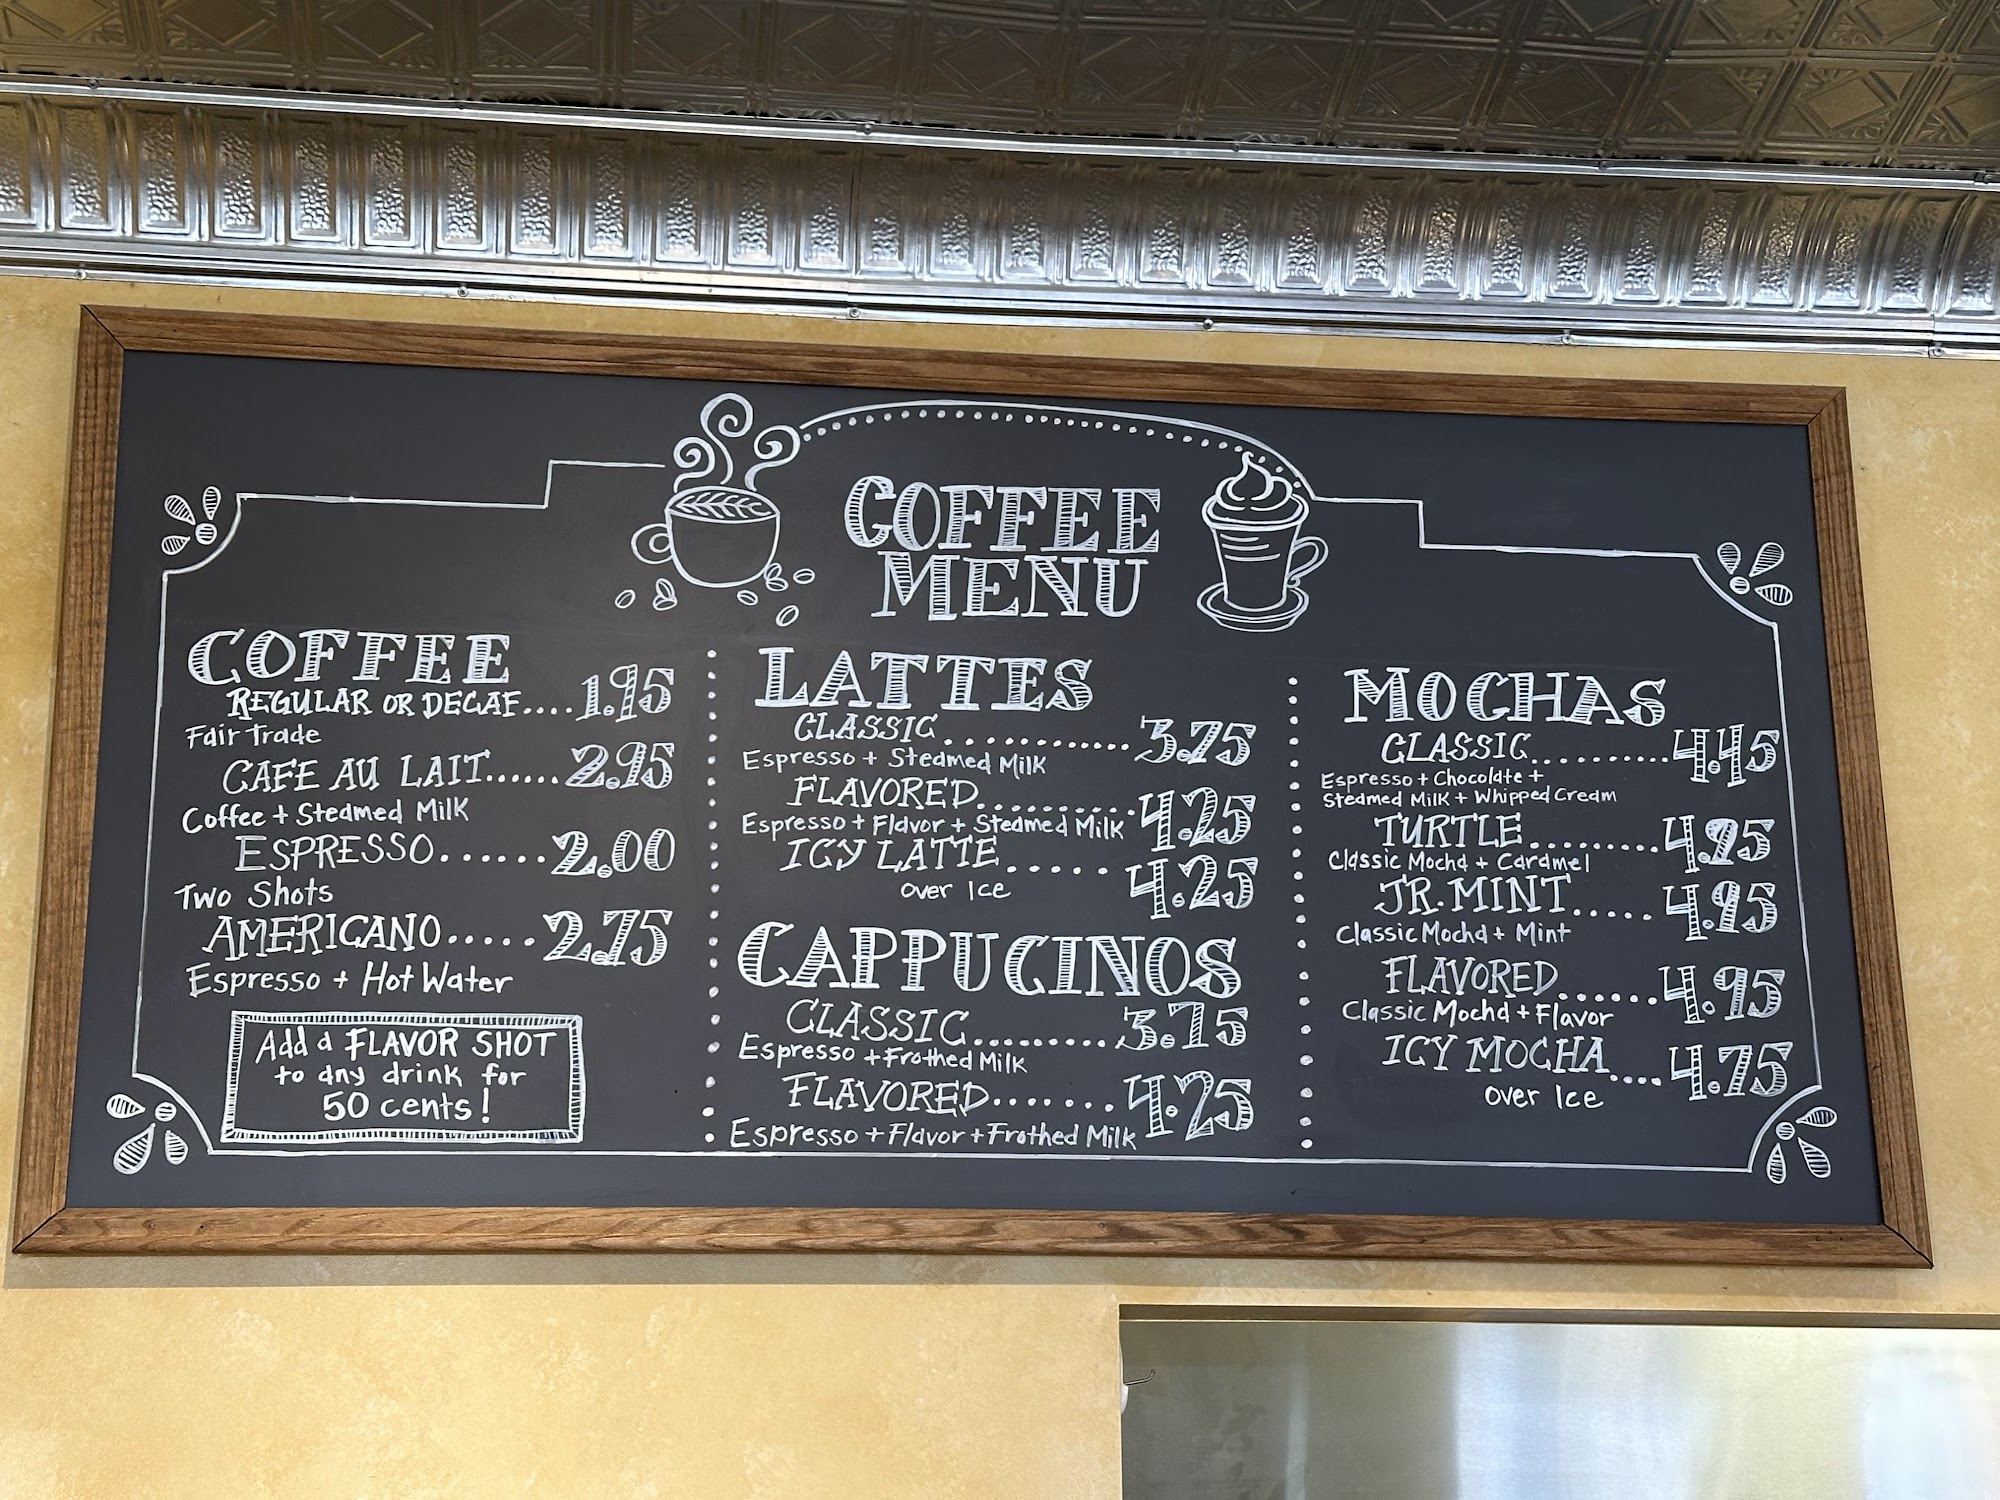 COFFEE
MENU
COFFEE
REGULAR OR DECAF....1.95
Fair Trade
CAFE AU LAIT......2.95
Coffee + Steamed Milk
ESPRESSO......2.00
Two Shots
AMERICANO.....2.75
Espresso + Hot Water
Add a FLAVOR SHOT
to any drink for
50 cents!
LATTES
CLASSIC............3.75
Espresso + Steamed Milk
FLAVORED..........4.25
Espresso + Flavor + Steamed Milk
ICY LATTE......4.25
over Ice
CAPPUCINOS
CLASSIC.........3.75
Espresso + Frothed Milk
FLAVORED.......4.25
Espresso + Flavor + Frothed Milk
MOCHAS
CLASSIC..........4.45
Espresso + Chocolate +
Steamed Milk + Whipped Cream
TURTLE.........4.95
Classic Mocha + Caramel
JR. MINT.....4.95
Classic Mocha + Mint
FLAVORED......4.95
Classic Mocha + Flavor
ICY MOCHA....4.75
over Ice